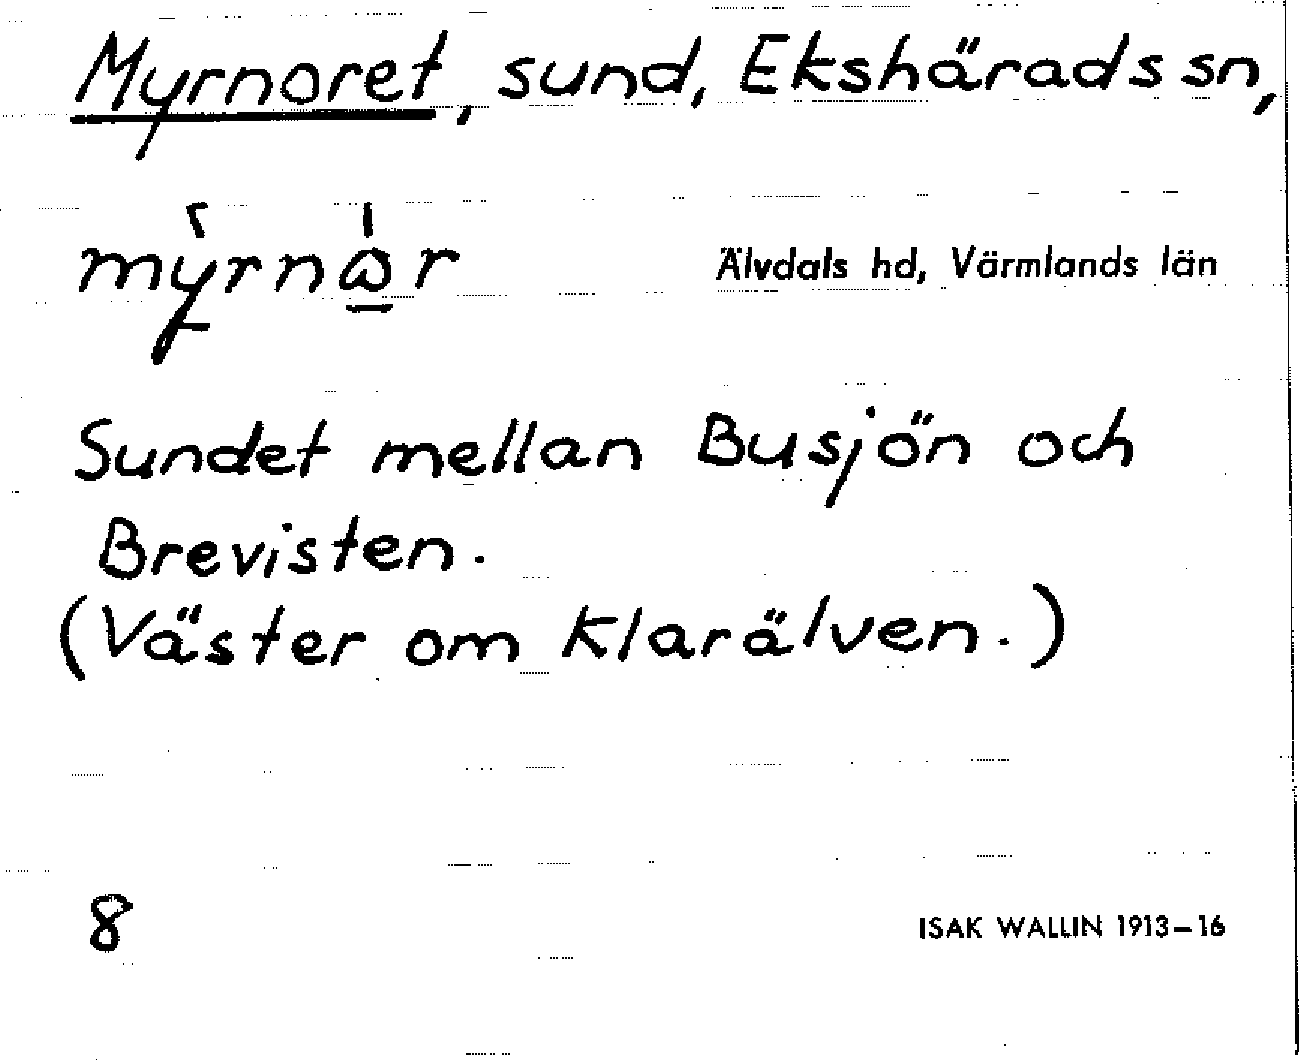 Myrnoret, sund, Ekshärads sn,
Älvdals hd, Värmlands län
Sundet mellan Busjön och
Brevisten.
(Väster om Klarälven.)
8
ISAK WALLIN 1913–16